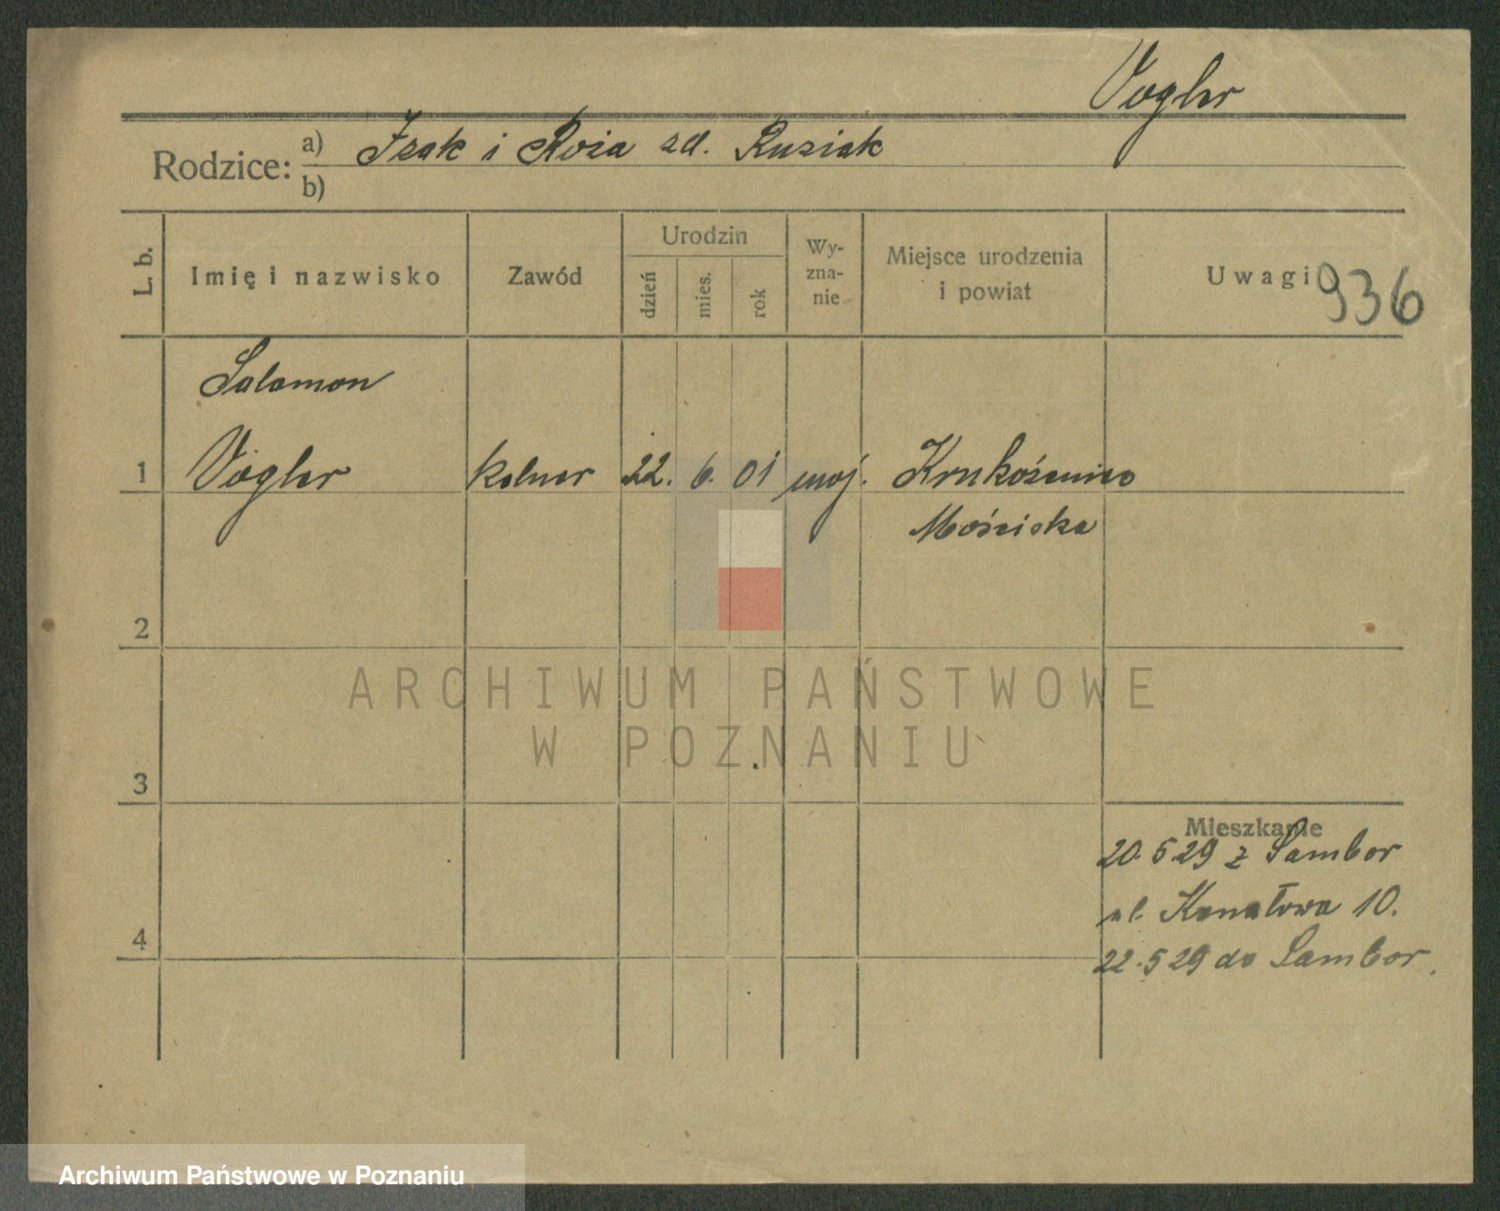 Vogler
Rodzice: a) Izak i Roża zd. Rusiak
b)
L. b. Imię i nazwisko Zawód Urodzin dzień mies. rok Wy-zna-nie Miejsce urodzenia i powiat Uwagi 936
Salamon
1 Vogler kelner 22. 6. 01 moj. Krukożenice
Mościska
2
ARCHIWUM PAŃSTWOWE
W POZNANIU
3
Mieszkanie
20.5 29 z Sambor
ul. Kanałowa 10.
4
22.5 29 do Sambor.
Archiwum Państwowe w Poznaniu